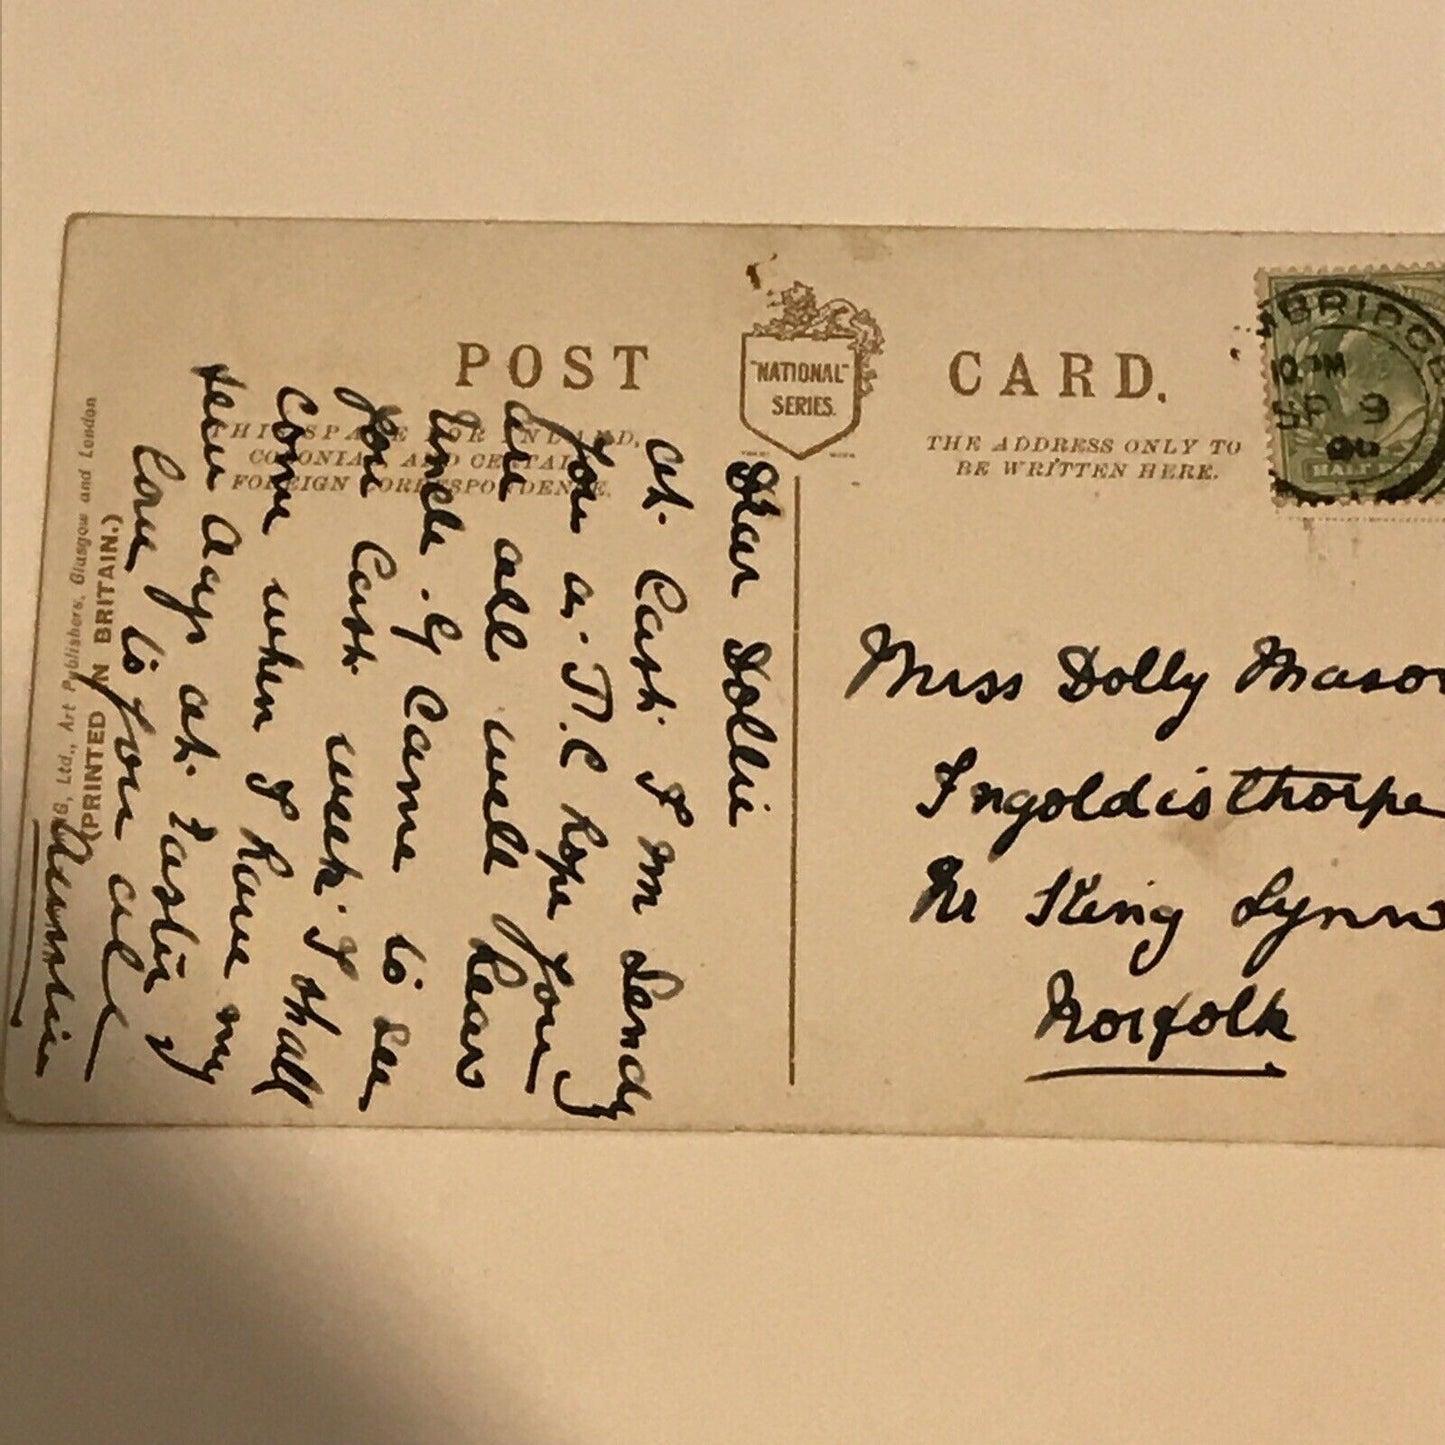 POST CARD.
"NATIONAL" SERIES.
THIS SPACE FOR INLAND,
COLONIAL AND CERTAIN
FOREIGN CORRESPONDENCE.
THE ADDRESS ONLY TO
BE WRITTEN HERE.
MBRIDGE
10. PM
SP 9
HALF
Dear Dollie
at Last I m Sendg
you a P.C hope you
are all well hears
Uncle . G came to see
you Last week I shall
come when I have my
few days at Easter
Love to you all
Auntie
Miss Dolly Mason
Ingoldisthorpe
Nr King Lynn
Norfolk
Ltd., Art Publishers, Glasgow and London
(PRINTED IN BRITAIN.)